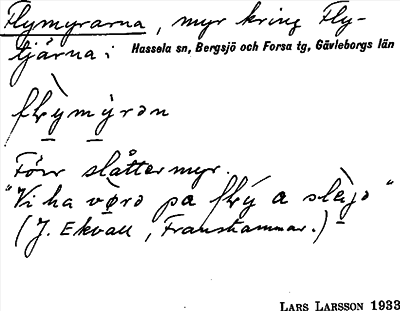 Flymyrarna, myr kring Fly-
tjärna i Hassela sn, Bergsjö och Forsa tg, Gävleborgs län
Förr slåttermyr.
"Vi ha vørə pa a "
(J. Ekvall, Franshammar.)
LARS LARSSON 1933